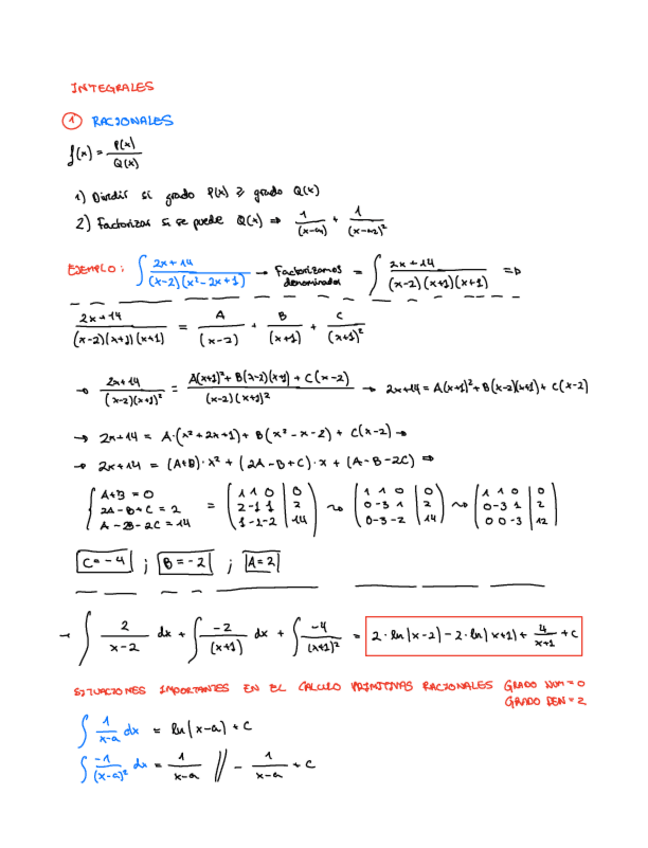 INTEGRALES
① RACIONALES
f(x) = P(x)/Q(x)
1) Dividir si grado P(x) ≥ grado Q(x)
2) Factorizar si se puede Q(x) ⇒ 1/(x-a) + 1/(x-a2)²
EJEMPLO: ∫ (2x+14)/((x-2)(x²-2x+1)) → Factorizamos denominador = ∫ (2x+14)/((x-2)(x+1)(x+1)) ⇒
(2x+14)/((x-2)(x+1)(x+1)) = A/(x-2) + B/(x+1) + C/(x+1)²
→ (2x+14)/((x-2)(x+1)²) = (A(x+1)² + B(x-2)(x+1) + C(x-2))/((x-2)(x+1)²) → 2x+14 = A(x+1)² + B(x-2)(x+1) + C(x-2)
→ 2x+14 = A·(x²+2x+1) + B(x²-x-2) + C(x-2) →
→ 2x+14 = (A+B)·x² + (2A-B+C)·x + (A-B-2C) ⇒
{ A+B = 0 ; 2A-B+C = 2 ; A-2B-2C = 14 = (1 1 0 | 0 ; 2 -1 1 | 2 ; 1 -1 -2 | 14) ~> (1 1 0 | 0 ; 0 -3 1 | 2 ; 0 -3 -2 | 14) ~> (1 1 0 | 0 ; 0 -3 1 | 2 ; 0 0 -3 | 12)
C = -4 ; B = -2 ; A = 2
→ ∫ 2/(x-2) dx + ∫ -2/(x+1) dx + ∫ -4/(x+1)² = 2·ln|x-2| - 2·ln|x+1| + 4/(x+1) + C
SITUACIONES IMPORTANTES EN EL CALCULO PRIMITIVAS RACIONALES GRADO NUM = 0
GRADO DEN = 2
∫ 1/(x-a) dx = ln|x-a| + C
∫ -1/(x-a)² dx = 1/(x-a) // - 1/(x-a) + C